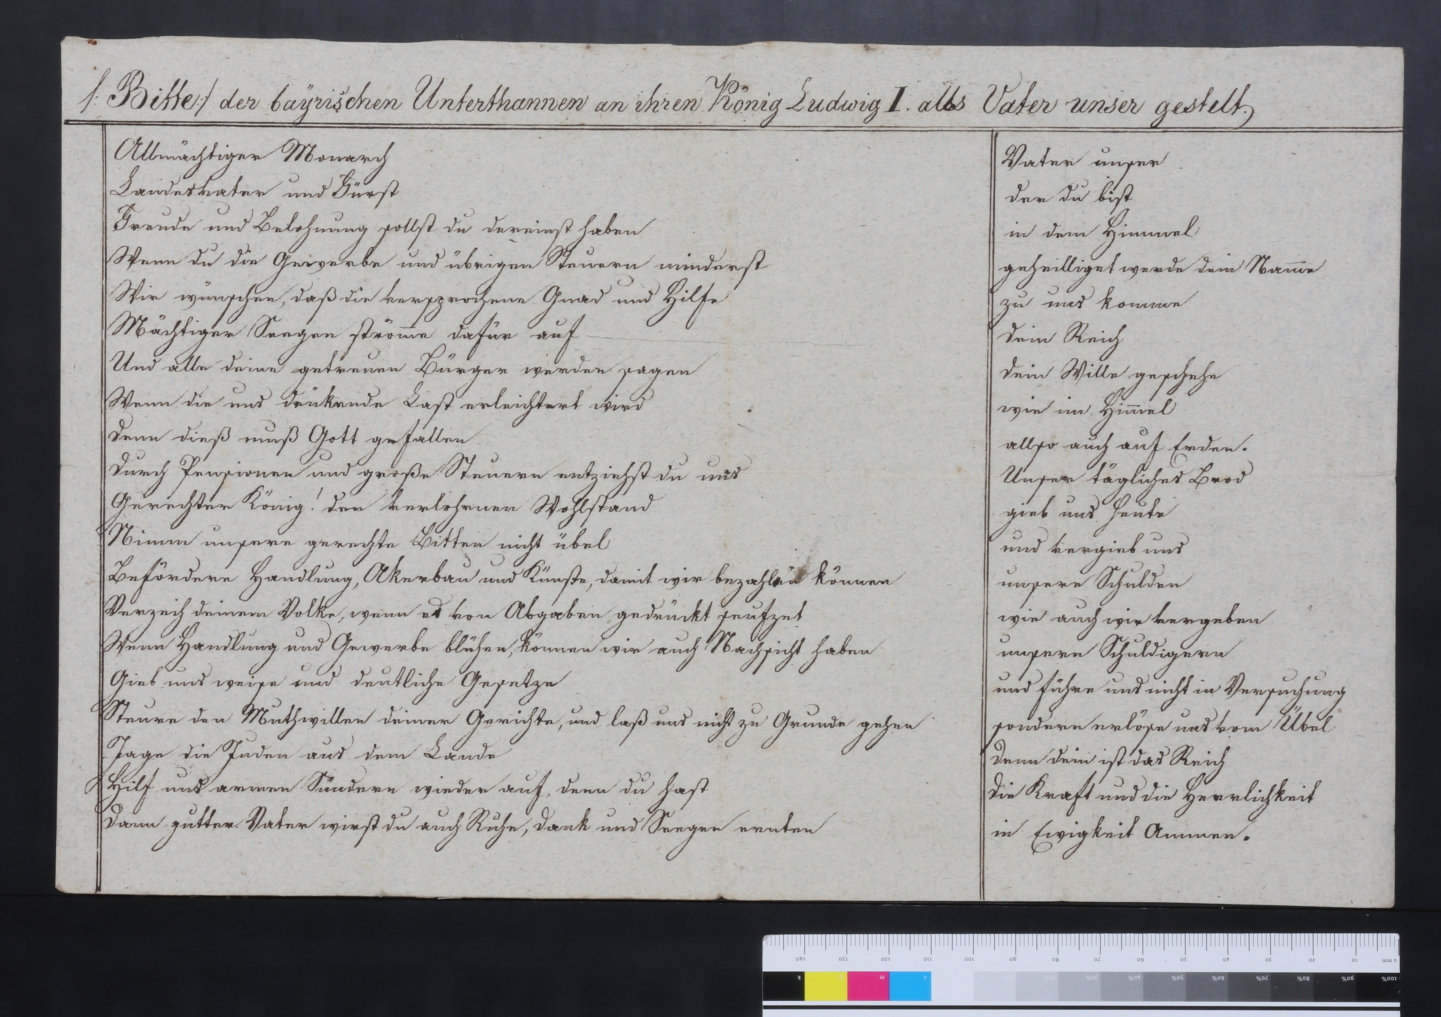 /: Bitte :/ der bayrischen Unterthannen an ihren König Ludwig I. alls Vater unser gestelt.
Allmächtiger Monarch Vater unser
Landesvater und Fürst der du bist
Freude und Belohnung sollst du dereinst haben in dem Himmel
Wenn du die Gewerbe und übrigen Steuern minderst geheilliget werde dein Nam̄e
Wir wünschen, daß die versprochene Gnad und Hilfe zu uns komme
Mächtiger Seegen ström̄e dafür auf dein Reich
Und alle deine getreuen Bürger werden sagen dein Wille geschehe
Wenn die uns drükende Last erleichtert wird wie im Him̄el
denn dieß muß Gott gefallen allso auch auf Erden.
durch Pensionen und große Steuern entziehst du uns Unser tägliches Brod
Gerechter König! den verlohrnen Wohlstand gieb uns heute
Nimm unsere gerechte Bitten nicht übel und vergieb uns
Befördere Handlung, Akerbau und Künste, damit wir bezahlen können unsere Schulden
Verzeih deinem Volke, wenn es von Abgaben gedrückt seufzet wie auch wir vergeben
Wenn Handlung und Gewerbe blühen, können wir auch Nachsicht haben unsern Schuldigern
Gieb uns weise und deutliche Gesetze und führe uns nicht in Versuchung
Steure den Muthwillen deiner Gerichte, und laß uns nicht zu Grunde gehen sondern erlöse uns vom Übel
Jage die Juden aus dem Lande denn dein ist das Reich
Hilf uns armen Sündern wieder auf, denn du hast die Kraft und die Herrlichkeit
Dann gutter Vater wirst du auch Ruhe, Dank und Seegen ernten in Ewigkeit Ammen.